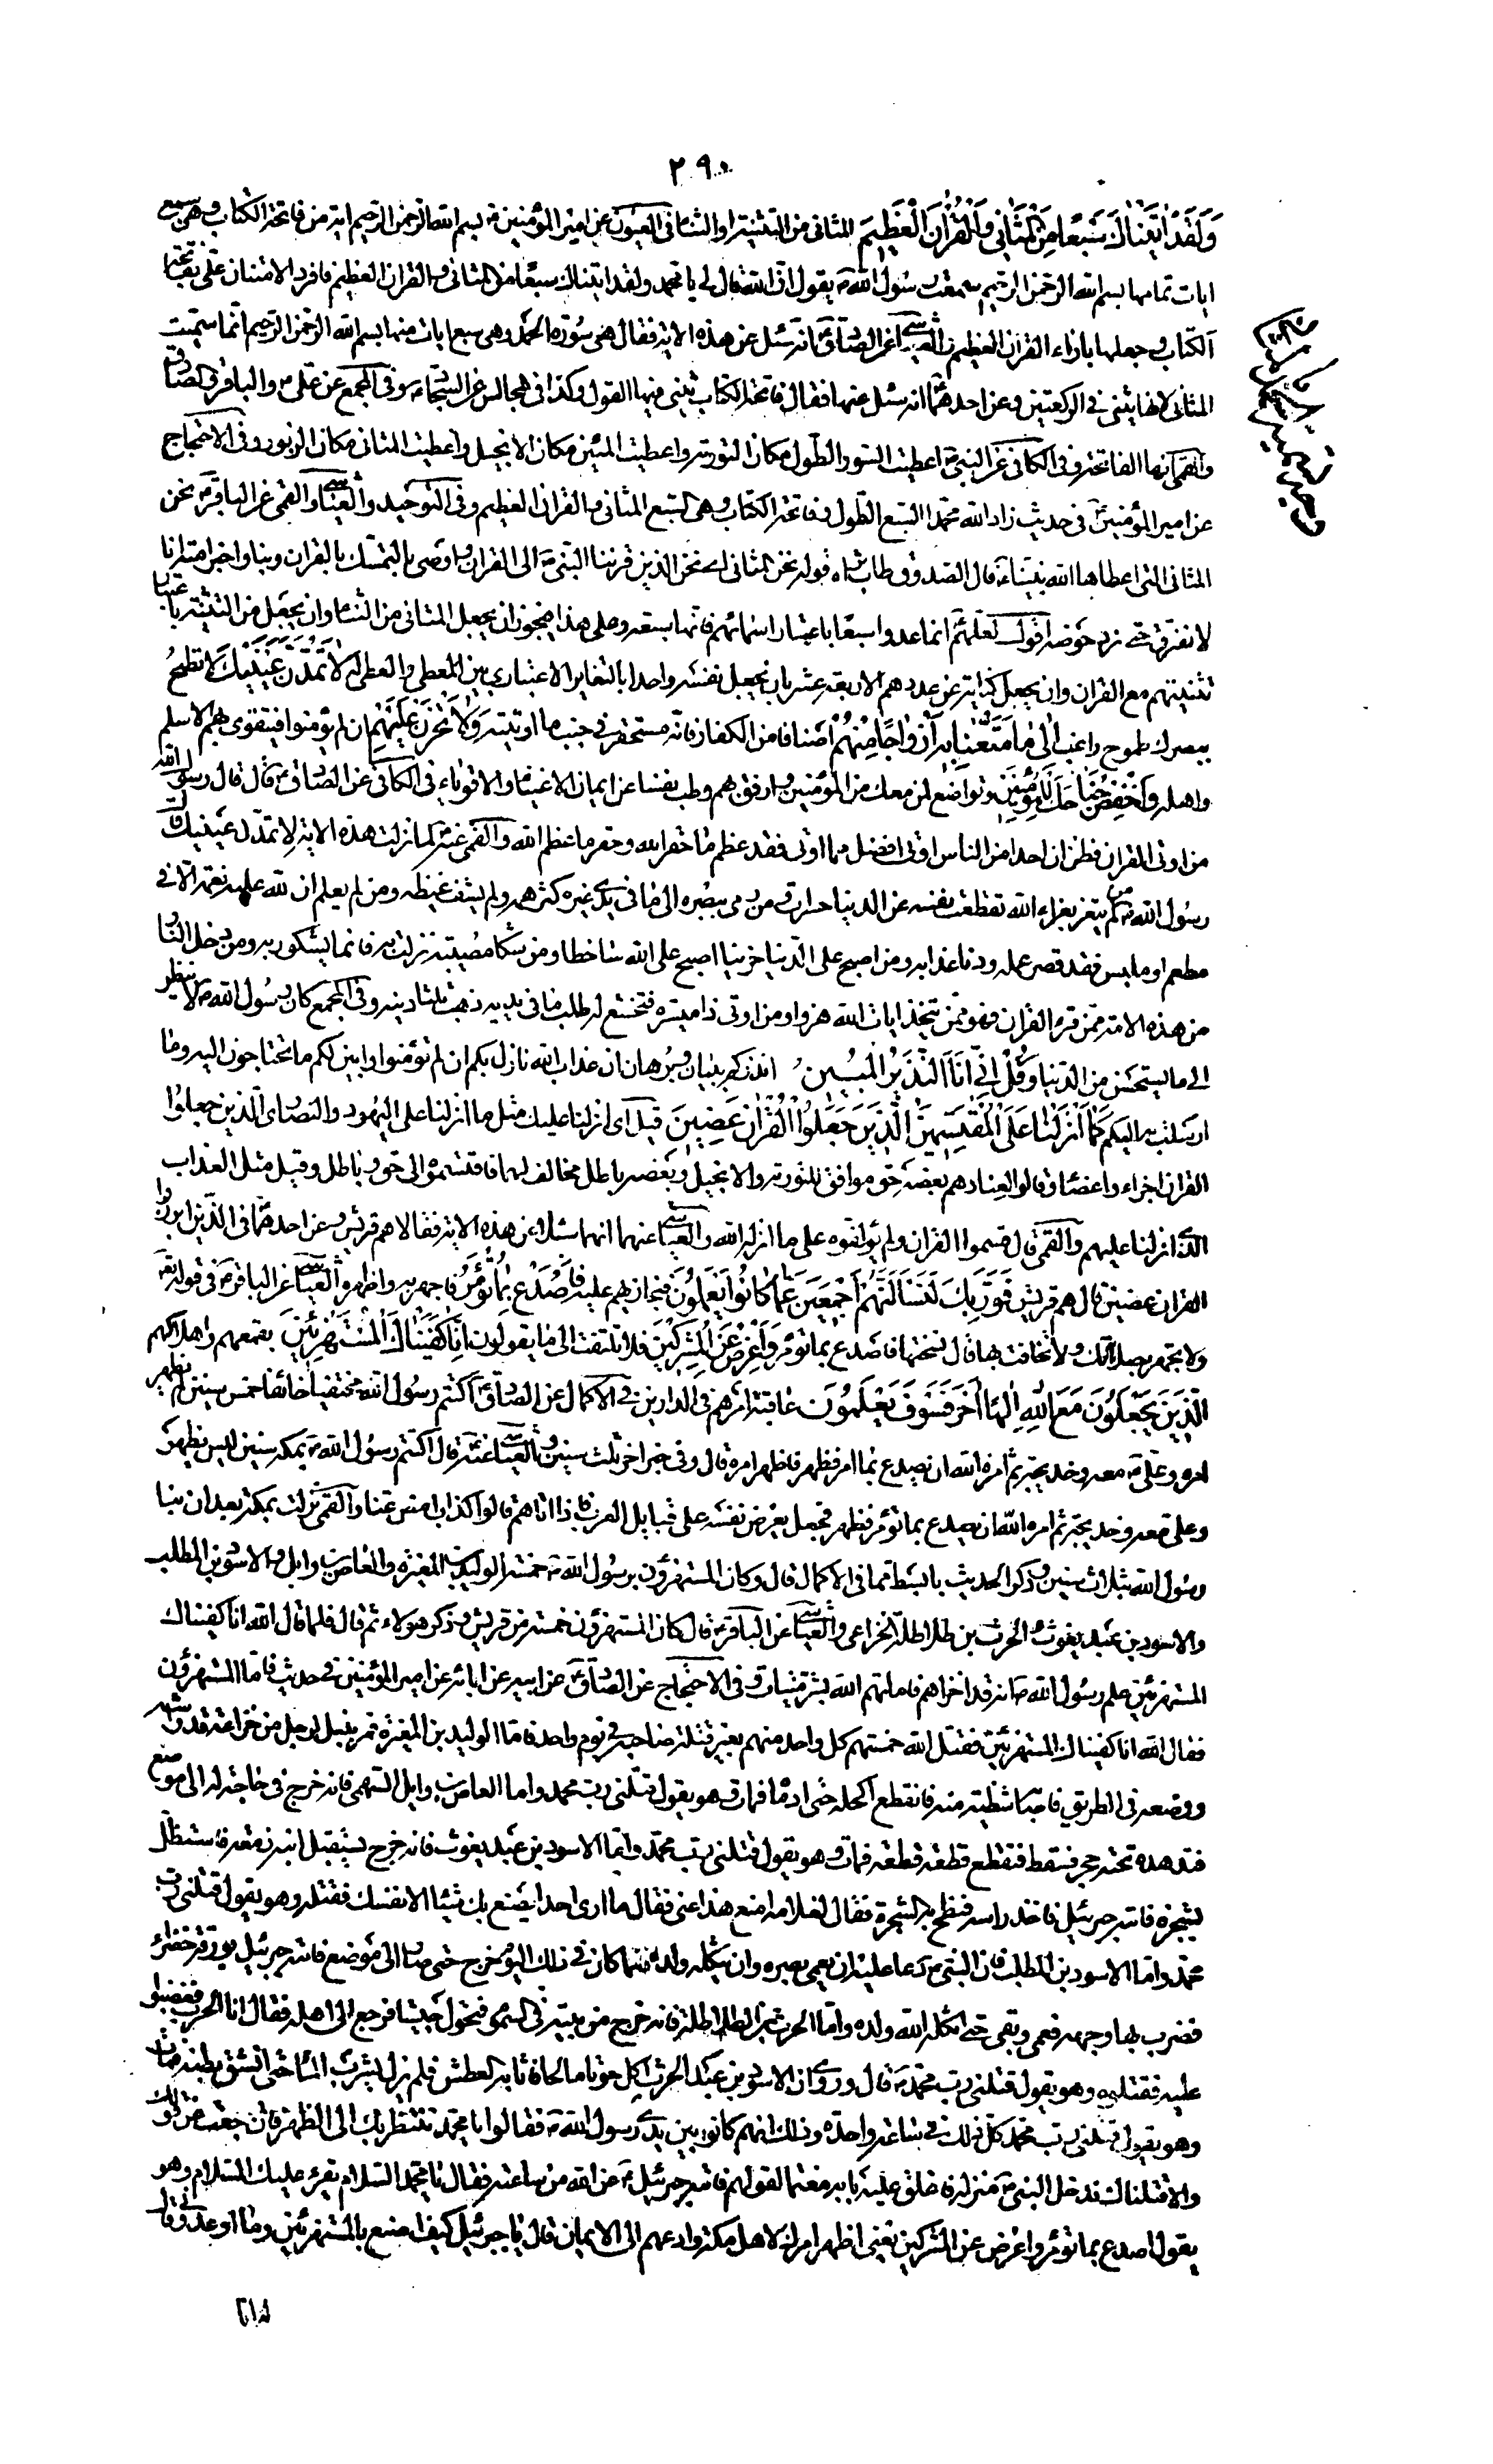 ٢٩٠
وَلَقَدْ اٰتَيْنٰاكَ سَبْعًا مِنَ الْمَثٰانِي وَالْقُرْاٰنَ الْعَظِيمَ المثانى من التثنية او الثناء فى العيون عن امير المؤمنين ع بسم الله الرحمن الرحيم اية من فاتحة الكتاب وهى سبع
ايات تمامها بسم الله الرحمن الرحيم سمعت رسول الله ص يقول ان الله قال لى يا محمد ولقد اتيناك سبعا من المثانى والقران العظيم فافرد الامتنان على بفاتحة
الكتاب وجعلها بازاء القران العظيم والعياشى عن الصادق ع انه سئل عن هذه الاية فقال هى سورة الحمد وهى سبع ايات منها بسم الله الرحمن الرحيم انما سميت
المثانى لانها يثنى فى الركعتين وعن احدهما ع انه سئل عنها فقال فاتحة الكتاب يثنى فيها القول وكذا فى المجالس عن السجاد ع وفى المجمع عن على ع والباقر والصادق
والقمى انها الفاتحة وفى الكافى عن النبى ص اعطيت السور الطول مكان التورية واعطيت المئين مكان الانجيل واعطيت المثانى مكان الزبور وفى الاحتجاج
عن امير المؤمنين ع فى حديث زاد الله محمدا السبع الطول وفاتحة الكتاب وهى السبع المثانى والقران العظيم وفى التوحيد والعياشى والقمى عن الباقر ع نحن
المثانى التى اعطاها الله نبينا ص قال الصدوق طاب ثراه قوله نحن المثانى اى نحن الذين قرننا النبى ص الى القران واوصى بالتمسك بالقران وبنا واخبر امته انا
لا نفترق حتى نرد حوضه اقول لعلهم انما عدوا سبعا باعتبار اسمائهم فانها سبعة وعلى هذا فيجوز ان يجعل المثانى من الثناء وان يجعل من التثنية باعتبار
تثنيتهم مع القران وان يجعل كناية عن عددهم الاربعة عشر بان يجعل نفسه واحدا بالتغاير الاعتبارى بين المعطى والمعطى له لٰا تَمُدَّنَّ عَيْنَيْكَ لا تطمح
ببصرك طموح راغب اِلىٰ مٰا مَتَّعْنٰا بِهِ اَزْوٰاجًا مِنْهُمْ اصنافا من الكفار فانه مستحقر فى جنب ما اوتيته وَلٰا تَحْزَنْ عَلَيْهِمْ ان لم يؤمنوا فيتقوى بهم الاسلم
واهله وَاخْفِضْ جَنٰاحَكَ لِلْمُؤْمِنِينَ وتواضع لمن معك من المؤمنين وارفق بهم وطب نفسا عن ايمان الاغنياء والاقوياء فى الكافى عن الصادق ع قال قال رسول الله
من اوتى القران فظن ان احدا من الناس اوتى افضل مما اوتى فقد عظم ما حقر الله وحقر ما عظم الله والقمى عنه ع لما نزلت هذه الاية لا تمدن عينيك قال
رسول الله ص من لم يتعز بعزاء الله تقطعت نفسه عن الدنيا حسرات ومن رمى ببصره الى ما فى يدى غيره كثر همه ولم يشف غيظه ومن لم يعلم ان لله عليه نعمة الا فى
مطعم او ملبس فقد قصر عمله ودنا عذابه ومن اصبح على الدنيا حزينا اصبح على الله ساخطا ومن شكا مصيبة نزلت به فانما يشكو ربه ومن دخل النار
من هذه الامة ممن قرء القران فهو ممن يتخذ ايات الله هزوا ومن اوتى ذا ميسرة فتخشع له طلب ما فى يديه ذهب ثلثا دينه وفى المجمع كان رسول الله ص لا ينظر
الى ما يستحسن من الدنيا وَقُلْ اِنِّي اَنَا النَّذِيرُ الْمُبِينُ انذركم ببيان وبرهان ان عذاب الله نازل بكم ان لم تؤمنوا وابين لكم ما تحتاجون اليه وما
ارسلت به اليكم كَمٰا اَنْزَلْنٰا عَلَى الْمُقْتَسِمِينَ الَّذِينَ جَعَلُوا الْقُرْاٰنَ عِضِينَ قيل اى انزلنا عليك مثل ما انزلنا على اليهود والنصارى الذين جعلوا
القران اجزاء واعضاء وقالوا لعنادهم بعضه حق موافق للتورية والانجيل وبعضه باطل مخالف لهما فاقتسموه الى حق وباطل وقيل مثل العذاب
الذى انزلنا عليهم والقمى قال قسموا القران ولم يؤلفوه على ما انزله الله والعياشى عنهما انهما سئلا عن هذه الاية فقالا هم قريش وعن احدهما فى الذين ابرزوا
القران عضين قال هم قريش فَوَرَبِّكَ لَنَسْاَلَنَّهُمْ اَجْمَعِينَ عَمّٰا كٰانُوا يَعْمَلُونَ فنجازيهم عليه فَاصْدَعْ بِمٰا تُؤْمَرُ فاجهر به واظهره العياشى عن الباقر ع فى قوله تع
ولا تجهر بصلاتك ولا تخافت بها قال نسختها فاصدع بما تؤمر وَاَعْرِضْ عَنِ الْمُشْرِكِينَ فلا تلتفت الى ما يقولون اِنّٰا كَفَيْنٰاكَ الْمُسْتَهْزِئِينَ بقمعهم واهلاكهم
الَّذِينَ يَجْعَلُونَ مَعَ اللّٰهِ اِلٰهًا اٰخَرَ فَسَوْفَ يَعْلَمُونَ عاقبة امرهم فى الدارين فى الاكمال عن الصادق ع اكتتم رسول الله ص مختفيا خائفا خمس سنين لم يظهر
امره وعلى ع معه وخديجة ثم امره الله ان يصدع بما امر فظهر فاظهر امره قال وفى خبر اخر ثلث سنين والعياشى عنه ع قال اكتتم رسول الله ص بمكة سنين ليس يظهر
وعلى ع معه وخديجة ثم امره الله ان يصدع بما تؤمر فظهر فجعل يعرض نفسه على قبايل العرب فاذا اتاهم قالوا كذاب امض عنا والقمى نزلت بمكة بعد ان نبئ
رسول الله بثلاث سنين وذكر الحديث بابسط مما فى الاكمال قال وكان المستهزؤن برسول الله ص خمسة الوليد بن المغيرة والعاص بن وايل والاسود بن المطلب
والاسود بن عبد يغوث والحرث بن طلاطلة الخزاعى والعياشى عن الباقر ع قال كان المستهزؤن خمسة من قريش وذكر هؤلاء ثم قال فلما قال الله انا كفيناك
المستهزئين علم رسول الله ص انه قد اخزاهم فاماتهم الله بشر ميتات وفى الاحتجاج عن الصادق ع عن ابيه عن ابائه عن امير المؤمنين ع فى حديث فاما المستهزؤن
فقال الله انا كفيناك المستهزئين فقتل الله خمستهم كل واحد منهم بغير قتلة صاحبه فى يوم واحد فاما الوليد بن المغيرة فمر بنبل لرجل من خزاعة قد راشه
ووضعه فى الطريق فاصابه شظية منه فانقطع اكحله حتى ادماه فمات وهو يقول قتلنى رب محمد واما العاص بن وايل السهمى فانه خرج فى حاجة له الى موضع
فتدهده تحته حجر فسقط فتقطع قطعة قطعة فمات وهو يقول قتلنى رب محمد واما الاسود بن عبد يغوث فانه خرج يستقبل ابنه زمعة فاستظل
بشجرة فاتاه جبرئيل فاخذ راسه فنطح به الشجرة فقال لغلامه امنع هذا عنى فقال ما ارى احدا يصنع بك شيئا الا نفسك فقتله وهو يقول قتلنى رب
محمد واما الاسود بن المطلب فان النبى ص دعا عليه ان يعمى بصره وان يثكله ولده فلما كان فى ذلك اليوم خرج حتى صار الى موضع فاتاه جبرئيل بورقة خضراء
فضرب بها وجهه فعمى وبقى حتى اثكله الله ولده واما الحرث بن الطلاطلة فانه خرج من بيته فى السموم فتحول حبشيا فرجع الى اهله فقال انا الحرث فغضبوا
عليه فقتلوه وهو يقول قتلنى رب محمد ص قال وروى ان الاسود بن عبد الحرث اكل حوتا مالحا فاصابه العطش فلم يزل يشرب الماء حتى انشق بطنه فمات
وهو يقول قتلنى رب محمد كل ذلك فى ساعة واحدة وذلك انهم كانوا بين يدى رسول الله ص فقالوا يا محمد ننتظر بك الى الظهر فان رجعت عن قولك
والا قتلناك فدخل النبى ص منزله فاغلق عليه بابه مغتما لقولهم فاتاه جبرئيل ع عن الله من ساعته فقال يا محمد السلام يقرء عليك السلام وهو
يقول اصدع بما تؤمر واعرض عن المشركين يعنى اظهر امرك لاهل مكة وادعهم الى الايمان قال يا جبرئيل كيف اصنع بالمستهزئين وما اوعدونى قال